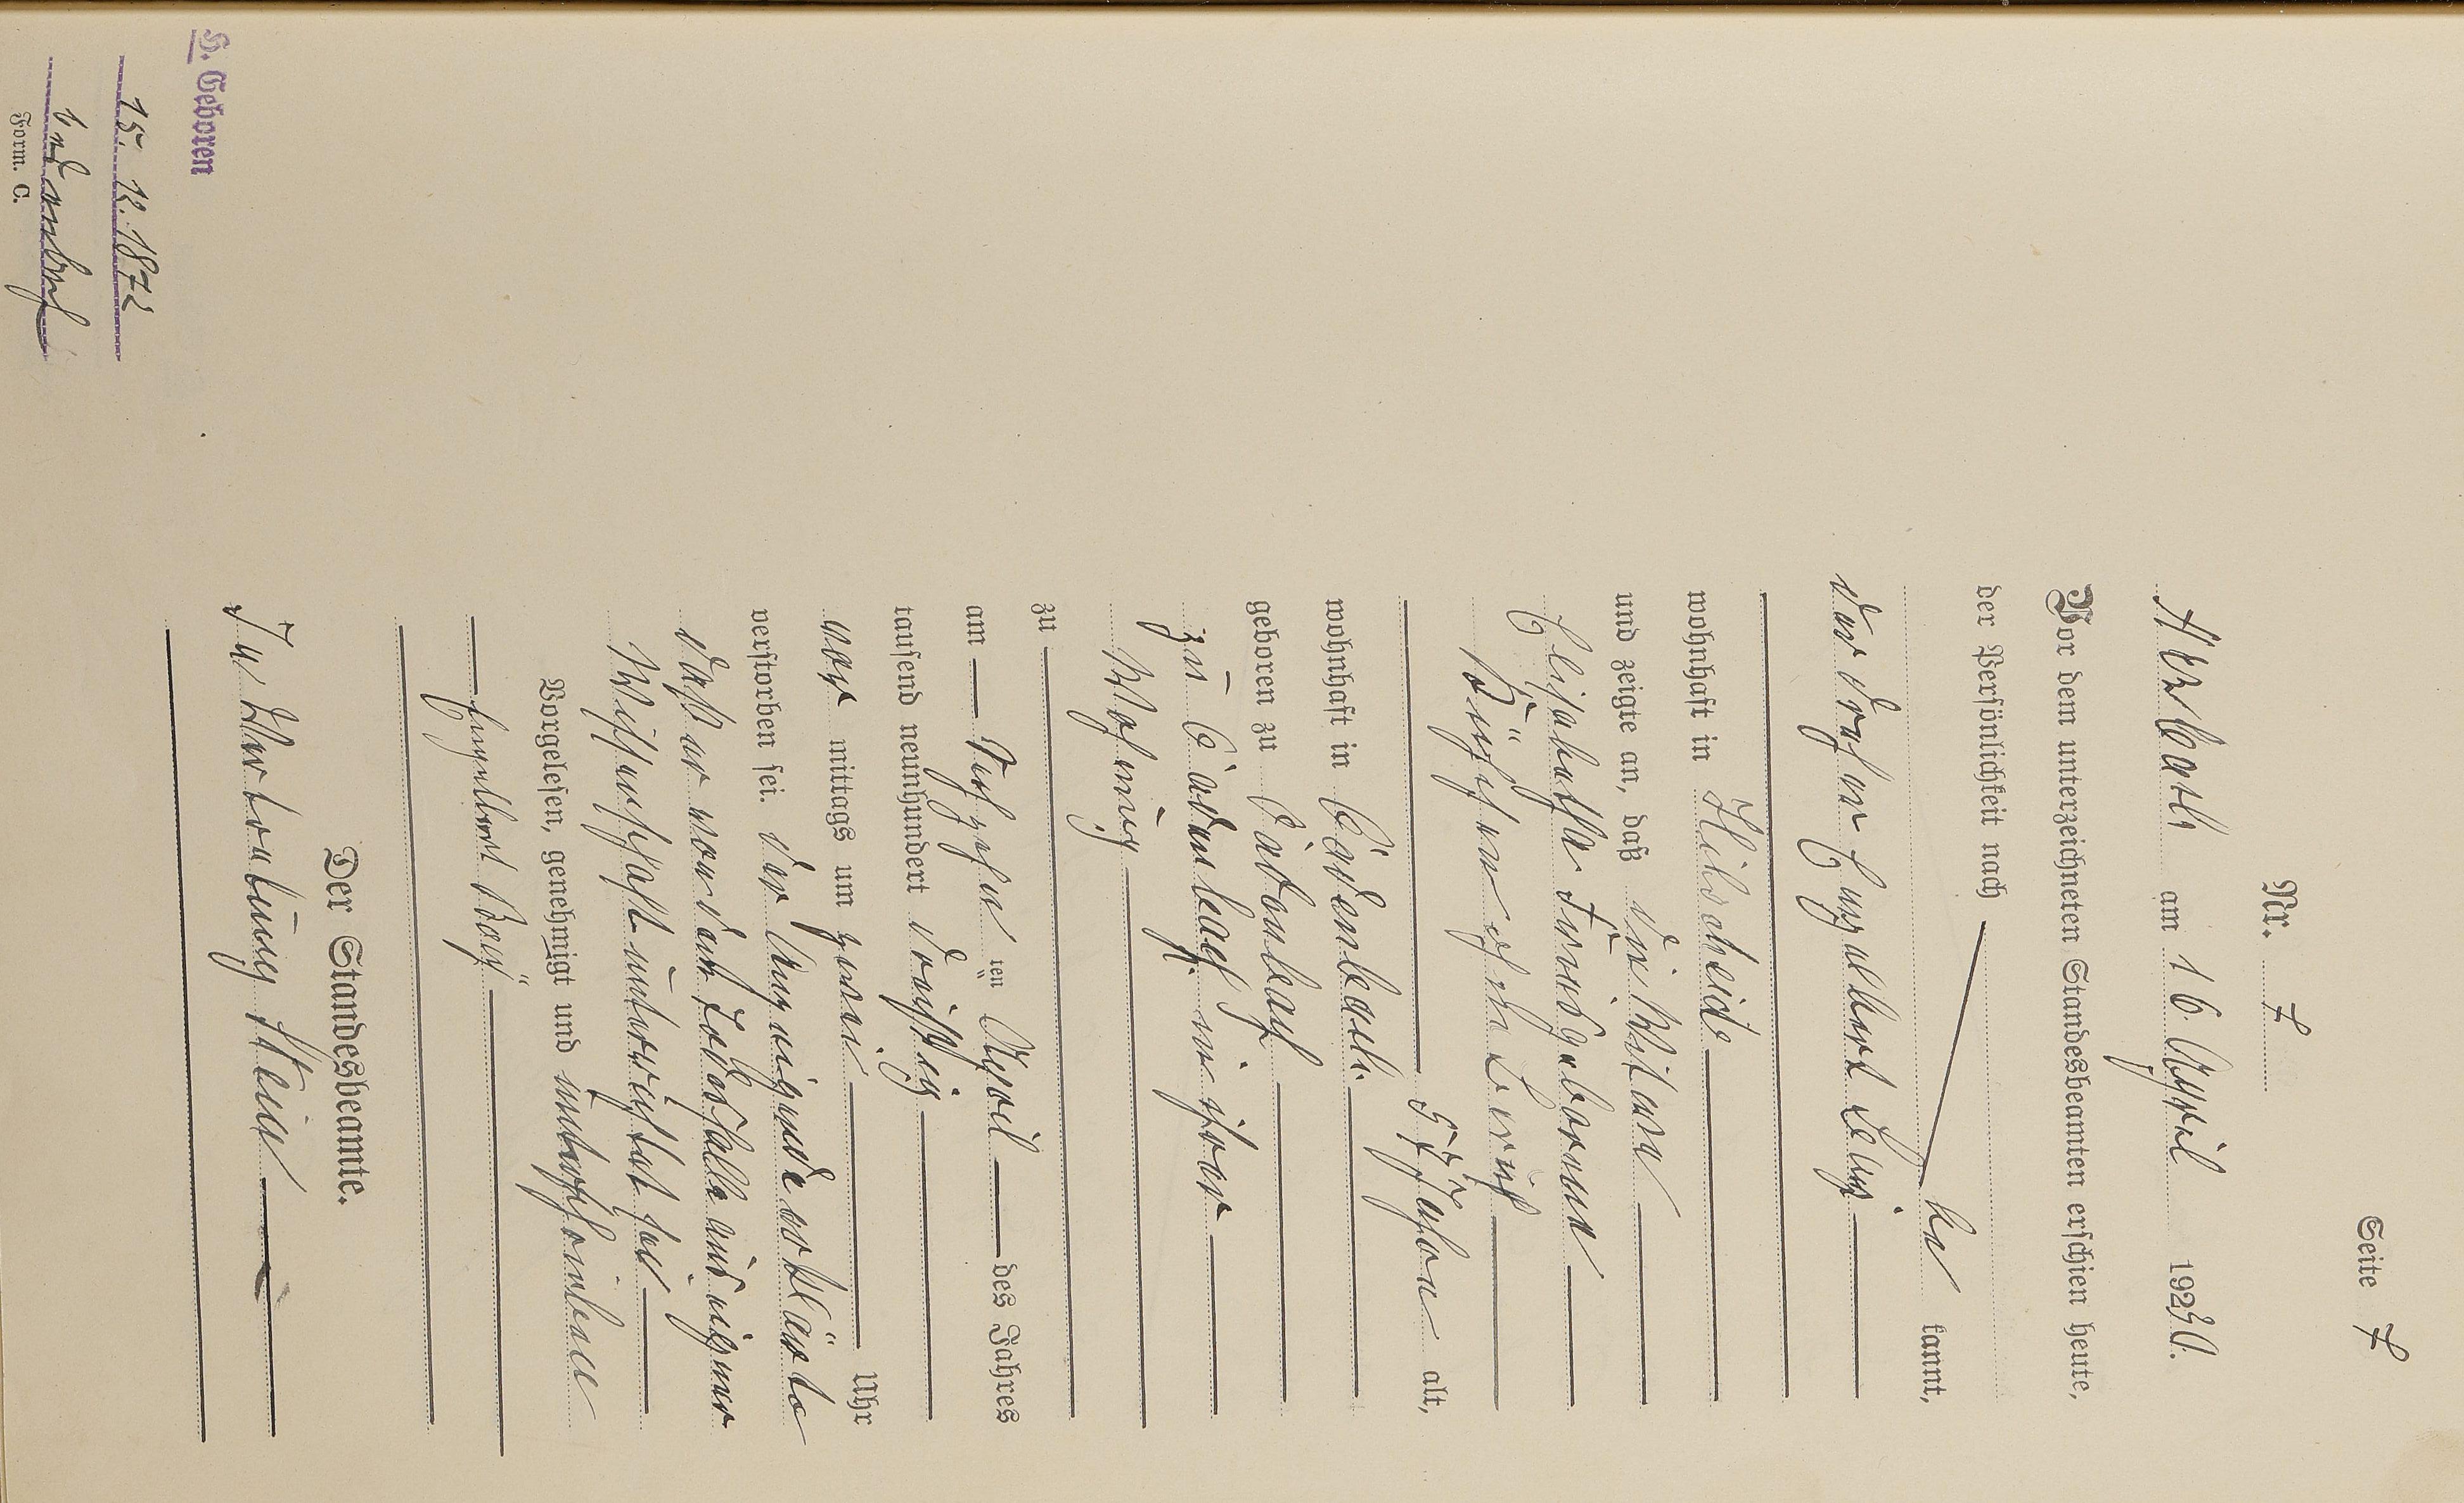 Seite 7
Nr. 7
am 16. April 1930.
Vor dem unterzeichneten Standesbeamten erschien heute,
der Persönlichkeit nach
kannt,
der Dreher Engelbert
wohnhaft in
und zeigte an, daß die Witwe
Elisabetha geborene
ohne Beruf
57 Jahre alt,
wohnhaft in Cadenbach
geboren zu Cadenbach
zu Cadenbach in ihrer
Wohnung
zu
am sechzehnten April des Jahres
tausend neunhundert dreißig
vor mittags um zwei Uhr
verstorben sei. Der Anzeigende erklärte
daß er von dem Todesfalle aus eigener
Wissenschaft unterrichtet sei
Vorgelesen, genehmigt und unterschrieben
Engelbert
Der Standesbeamte.
In Vertretung Stein
H. Geboren
15. 12. 1872
Cadenbach
Form. C.